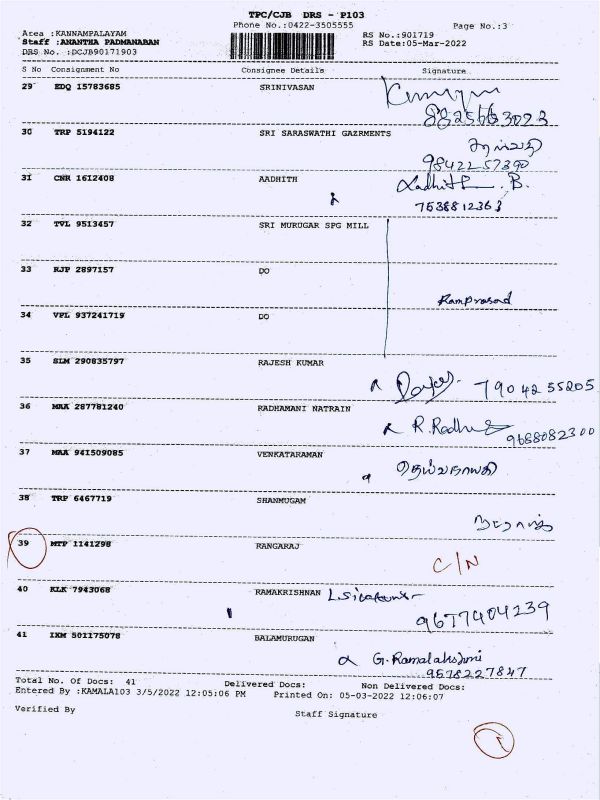 TPC/CJB DRS - P103
Phone No.:0422-3505555
Page No.:3
Area :KANNAMPALAYAM
Staff :ANANTHA PADMANABAN
DRS No. :DCJB90171903
RS No.:901719
RS Date:05-Mar-2022
S No Consignment No Consignee Details Signature
29 EDQ 15783685 SRINIVASAN
30 TRP 5194122 SRI SARASWATHI GAZRMENTS
9842257390
31 CNR 1612408 AADHITH
B.
7538812363
32 TVL 9513457 SRI MURUGAR SPG MILL
33 RJP 2897157 DO
Ramprasad
34 VPL 937241719 DO
35 SLM 290835797 RAJESH KUMAR
7904255205
36 MAA 287781240 RADHAMANI NATRAIN
R. Radha
9688082300
37 MAA 941509085 VENKATARAMAN
தெய்வநாயகி
38 TRP 6467719 SHANMUGAM
39 MTP 1141298 RANGARAJ
C/N
40 KLK 7943068 RAMAKRISHNAN
9677404239
41 IXM 501175078 BALAMURUGAN
G. Ramalakshmi
9578227847
Total No. Of Docs: 41 Delivered Docs: Non Delivered Docs:
Entered By :KAMALA103 3/5/2022 12:05:06 PM Printed On: 05-03-2022 12:06:07
Verified By Staff Signature